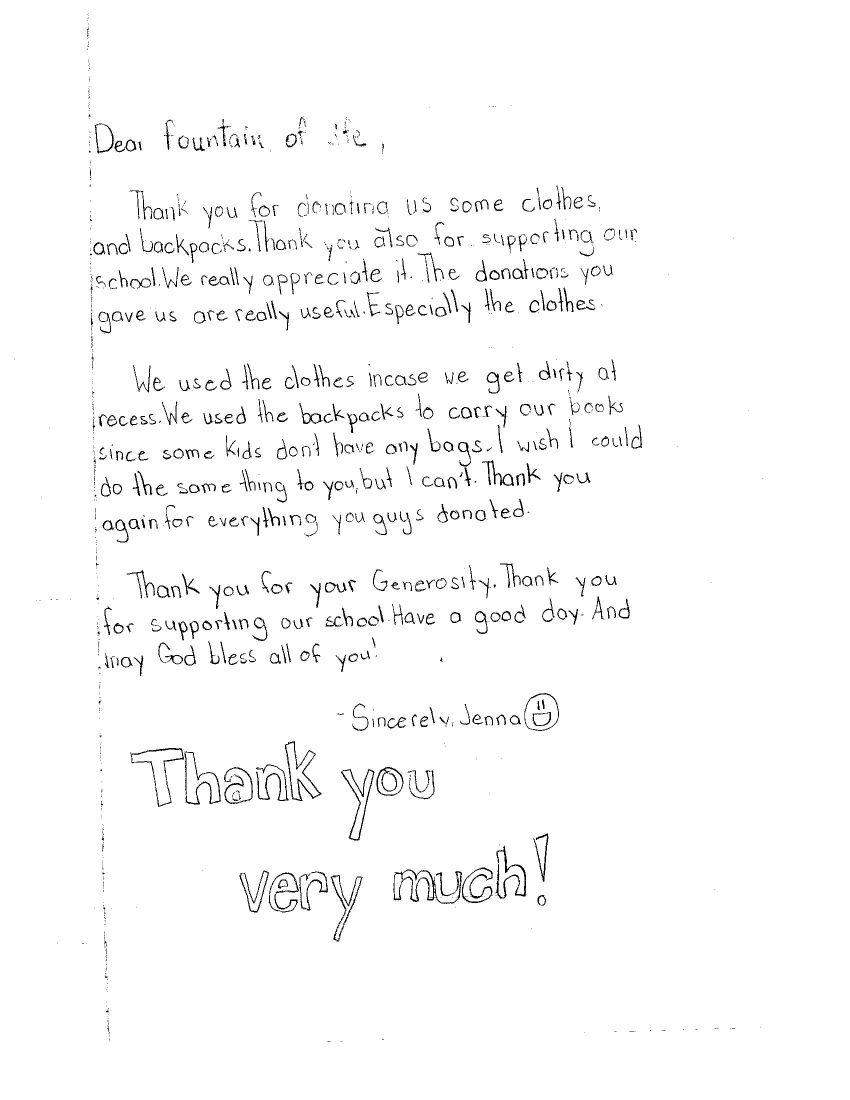 Dear fountain of life,
Thank you for donating us some clothes,
and backpacks. Thank you also for supporting our
school. We really appreciate it. The donations you
gave us are really useful. Especially the clothes.
We used the clothes incase we get dirty at
recess. We used the backpacks to carry our books
since some kids don't have any bags. I wish I could
do the same thing to you, but I can't. Thank you
again for everything you guys donated.
Thank you for your Generosity. Thank you
for supporting our school. Have a good day. And
may God bless all of you!
- Sincerely, Jenna
Thank you
very much!